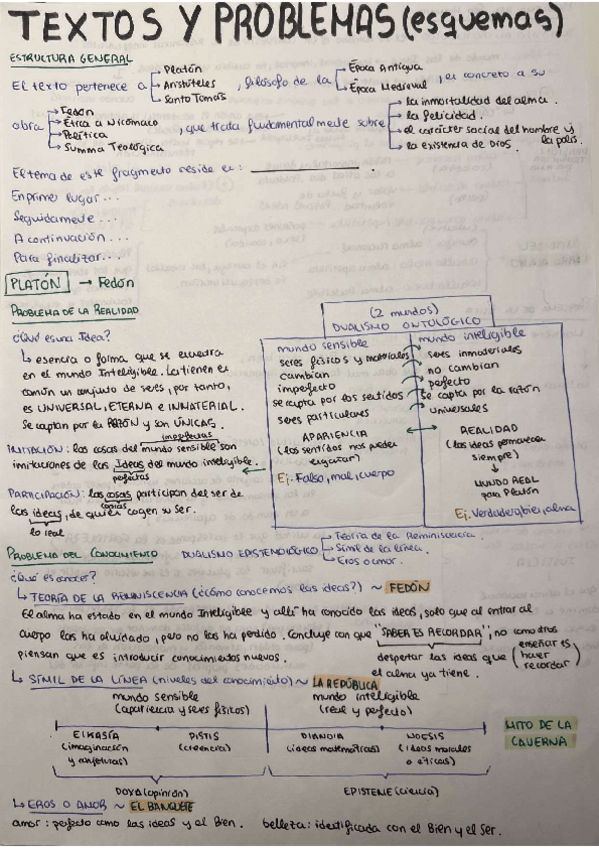 TEXTOS Y PROBLEMAS (esquemas)
ESTRUCTURA GENERAL
El texto pertenece a → Platón → Aristóteles → Santo Tomás, filósofo de la → Época Antigua → Época Medieval, en concreto a su
obra → Fedón → Ética a Nicómaco → Política → Summa Teológica, que trata fundamentalmente sobre → la inmortalidad del alma. → la felicidad. → el carácter social del hombre y la polis. → la existencia de Dios.
El tema de este fragmento reside en: ______________.
En primer lugar...
Seguidamente...
A continuación...
Para finalizar...
PLATÓN → Fedón
PROBLEMA DE LA REALIDAD
¿Qué es una Idea?
↳ esencia o forma que se encuentra
en el mundo Inteligible. La tienen en
común un conjunto de seres, por tanto,
es UNIVERSAL, ETERNA e INMATERIAL.
Se captan por la RAZÓN y son ÚNICAS.
imperfectas
IMITACIÓN: las cosas del mundo sensible son
imitaciones de las Ideas del mundo inteligible.
perfectas
PARTICIPACIÓN: las cosas participan del ser de
copias
las ideas, de quien cogen su ser.
lo real
(2 mundos)
DUALISMO ONTOLÓGICO
mundo sensible
seres físicos y materiales
cambian
imperfecto
se capta por los sentidos
seres particulares
APARIENCIA
(los sentidos nos pueden
engañar)
Ej. Falso, mal, cuerpo
mundo inteligible
seres inmateriales
no cambian
perfecto
se capta por la razón
universales
REALIDAD
(las ideas permanecen
siempre)
↓
MUNDO REAL
para Platón
Ej. Verdadera, bien, alma
PROBLEMA DEL CONOCIMIENTO DUALISMO EPISTEMOLÓGICO → Teoría de la Reminiscencia. → Símil de la línea. → Eros o amor.
¿Qué es conocer?
↳ TEORÍA DE LA REMINISCENCIA (¿cómo conocemos las ideas?) ~ FEDÓN
El alma ha estado en el mundo Inteligible y allí ha conocido las ideas, solo que al entrar al
cuerpo las ha olvidado, pero no las ha perdido. Concluye con que "SABER ES RECORDAR", no como otros
piensan que es introducir conocimientos nuevos.
despertar las ideas que
el alma ya tiene.
(enseñar es
hacer
recordar)
↳ SÍMIL DE LA LÍNEA (niveles del conocimiento) ~ LA REPÚBLICA
mundo sensible
(apariencia y seres físicos)
mundo inteligible
(real y perfecto)
EIKASÍA
(imaginación
y conjeturas)
PISTIS
(creencia)
DIANOIA
(ideas matemáticas)
NOESIS
(ideas morales
o éticas)
MITO DE LA
CAVERNA
DOXA (opinión)
EPISTEME (ciencia)
↳ EROS O AMOR ~ EL BANQUETE
amor: perfecto como las ideas y el Bien. belleza: identificada con el Bien y el Ser.